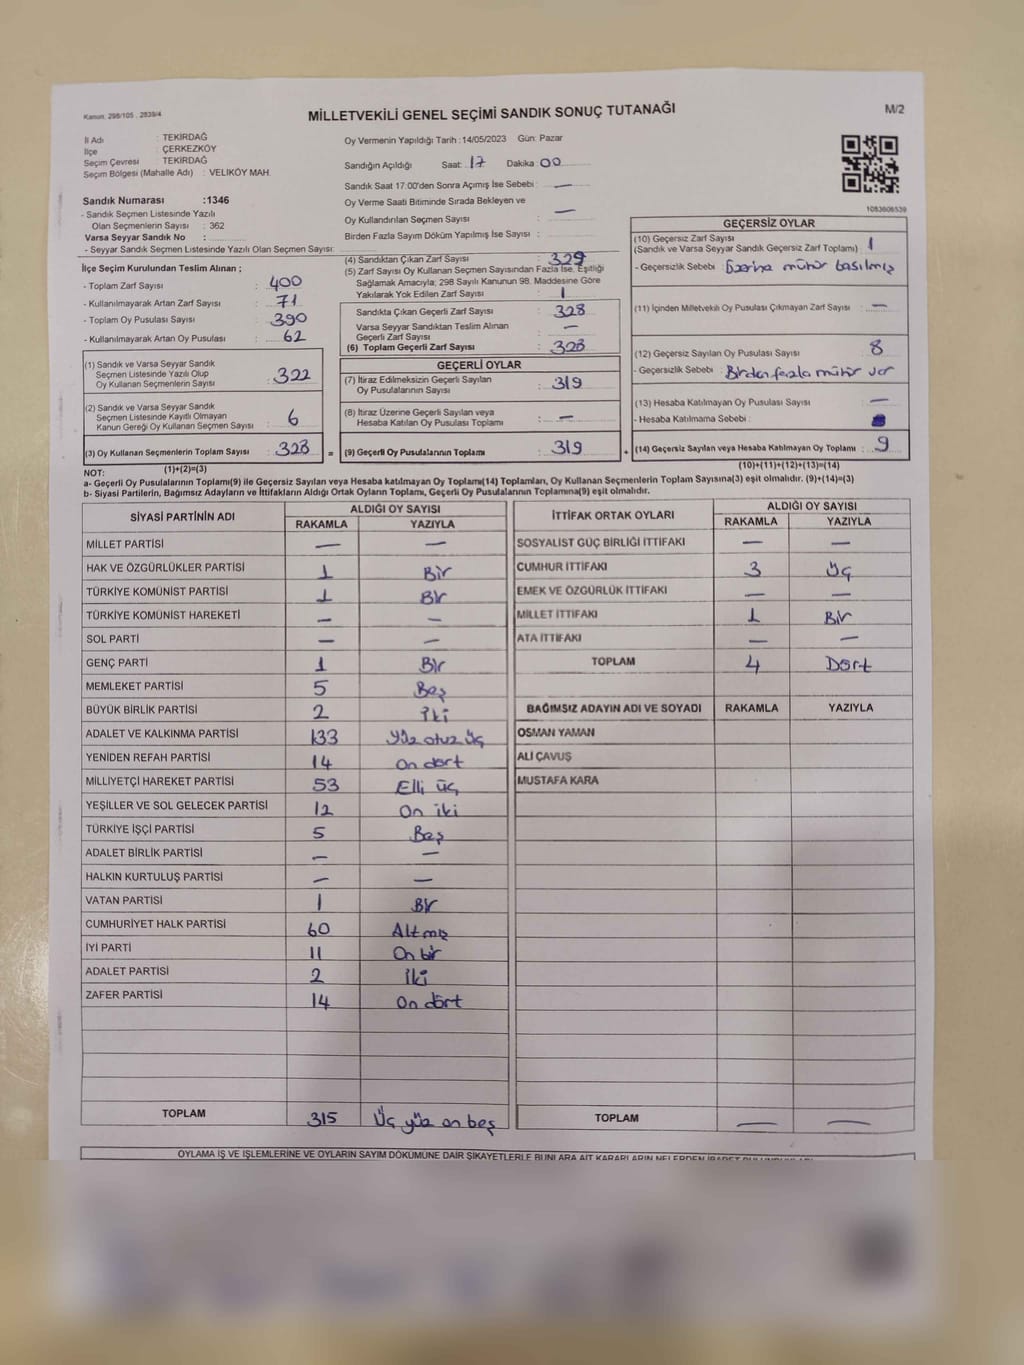 Kanun. 298/105 , 2839/4
MİLLETVEKİLİ GENEL SEÇİMİ SANDIK SONUÇ TUTANAĞI
M/2
İl Adı : TEKİRDAĞ
İlçe : ÇERKEZKÖY
Seçim Çevresi : TEKİRDAĞ
Seçim Bölgesi (Mahalle Adı) : VELİKÖY MAH.
Sandık Numarası :1346
- Sandık Seçmen Listesinde Yazılı
Olan Seçmenlerin Sayısı : 362
Varsa Seyyar Sandık No :
- Seyyar Sandık Seçmen Listesinde Yazılı Olan Seçmen Sayısı:
Oy Vermenin Yapıldığı Tarih :14/05/2023 Gün: Pazar
Sandığın Açıldığı Saat: 17 Dakika: 00
Sandık Saat 17:00'den Sonra Açımış İse Sebebi : —
Oy Verme Saati Bitiminde Sırada Bekleyen ve
Oy Kullandırılan Seçmen Sayısı : —
Birden Fazla Sayım Döküm Yapılmış İse Sayısı :
1083606539
İlçe Seçim Kurulundan Teslim Alınan ;
- Toplam Zarf Sayısı : 400
- Kullanılmayarak Artan Zarf Sayısı : 71
- Toplam Oy Pusulası Sayısı : 390
- Kullanılmayarak Artan Oy Pusulası : 62
(1) Sandık ve Varsa Seyyar Sandık
Seçmen Listesinde Yazılı Olup
Oy Kullanan Seçmenlerin Sayısı : 322
(2) Sandık ve Varsa Seyyar Sandık
Seçmen Listesinde Kayıtlı Olmayan
Kanun Gereği Oy Kullanan Seçmen Sayısı : 6
(3) Oy Kullanan Seçmenlerin Toplam Sayısı : 328 =
(1)+(2)=(3)
(4) Sandıktan Çıkan Zarf Sayısı : 329
(5) Zarf Sayısı Oy Kullanan Seçmen Sayısından Fazla İse, Eşitliği
Sağlamak Amacıyla; 298 Sayılı Kanunun 98. Maddesine Göre
Yakılarak Yok Edilen Zarf Sayısı : 1
Sandıkta Çıkan Geçerli Zarf Sayısı : 328
Varsa Seyyar Sandıktan Teslim Alınan
Geçerli Zarf Sayısı : —
(6) Toplam Geçerli Zarf Sayısı : 328
GEÇERLİ OYLAR
(7) İtiraz Edilmeksizin Geçerli Sayılan
Oy Pusulalarının Sayısı : 319
(8) İtiraz Üzerine Geçerli Sayılan veya
Hesaba Katılan Oy Pusulası Toplamı : —
(9) Geçerli Oy Pusulalarının Toplamı : 319 +
GEÇERSİZ OYLAR
(10) Geçersiz Zarf Sayısı
(Sandık ve Varsa Seyyar Sandık Geçersiz Zarf Toplamı) : 1
- Geçersizlik Sebebi : Üzerine mühür basılmış
(11) İçinden Milletvekili Oy Pusulası Çıkmayan Zarf Sayısı : —
(12) Geçersiz Sayılan Oy Pusulası Sayısı : 8
- Geçersizlik Sebebi : Birden fazla mühür var
(13) Hesaba Katılmayan Oy Pusulası Sayısı : —
- Hesaba Katılmama Sebebi :
(14) Geçersiz Sayılan veya Hesaba Katılmayan Oy Toplamı : 9
(10)+(11)+(12)+(13)=(14)
NOT:
a- Geçerli Oy Pusulalarının Toplamı(9) ile Geçersiz Sayılan veya Hesaba katılmayan Oy Toplamı(14) Toplamları, Oy Kullanan Seçmenlerin Toplam Sayısına(3) eşit olmalıdır. (9)+(14)=(3)
b- Siyasi Partilerin, Bağımsız Adayların ve İttifakların Aldığı Ortak Oyların Toplamı, Geçerli Oy Pusulalarının Toplamına(9) eşit olmalıdır.
SİYASİ PARTİNİN ADI ALDIĞI OY SAYISI
RAKAMLA YAZIYLA
MİLLET PARTİSİ — —
HAK VE ÖZGÜRLÜKLER PARTİSİ 1 Bir
TÜRKİYE KOMÜNİST PARTİSİ 1 Bir
TÜRKİYE KOMÜNİST HAREKETİ — —
SOL PARTİ — —
GENÇ PARTİ 1 Bir
MEMLEKET PARTİSİ 5 Beş
BÜYÜK BİRLİK PARTİSİ 2 İki
ADALET VE KALKINMA PARTİSİ 133 Yüz otuz üç
YENİDEN REFAH PARTİSİ 14 On dört
MİLLİYETÇİ HAREKET PARTİSİ 53 Elli üç
YEŞİLLER VE SOL GELECEK PARTİSİ 12 On iki
TÜRKİYE İŞÇİ PARTİSİ 5 Beş
ADALET BİRLİK PARTİSİ — —
HALKIN KURTULUŞ PARTİSİ — —
VATAN PARTİSİ 1 Bir
CUMHURİYET HALK PARTİSİ 60 Altmış
İYİ PARTİ 11 On bir
ADALET PARTİSİ 2 İki
ZAFER PARTİSİ 14 On dört
TOPLAM 315 Üç yüz on beş
İTTİFAK ORTAK OYLARI ALDIĞI OY SAYISI
RAKAMLA YAZIYLA
SOSYALİST GÜÇ BİRLİĞİ İTTİFAKI — —
CUMHUR İTTİFAKI 3 Üç
EMEK VE ÖZGÜRLÜK İTTİFAKI — —
MİLLET İTTİFAKI 1 Bir
ATA İTTİFAKI — —
TOPLAM 4 Dört
BAĞIMSIZ ADAYIN ADI VE SOYADI RAKAMLA YAZIYLA
OSMAN YAMAN
ALİ ÇAVUŞ
MUSTAFA KARA
TOPLAM — —
OYLAMA İŞ VE İŞLEMLERİNE VE OYLARIN SAYIM DÖKÜMÜNE DAİR ŞİKAYETLERLE BUNLARA AİT KARARLARIN